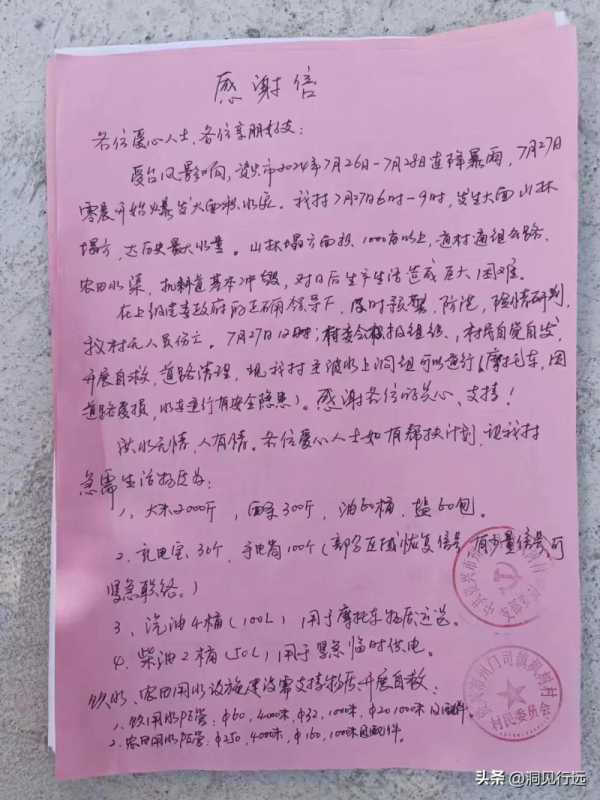 感谢信
各位爱心人士、各位亲朋好友：
受台风影响，资兴市2024年7月26日-7月28日连降暴雨，7月27日
零晨开始爆发大面积水灾。我村7月27日6时-9时，发生大面山林
塌方，达历史最大水量。山林塌方面积1000亩以上，通村通组公路、
农田水渠，机耕道基本冲毁，对日后生产生活造成巨大困难。
在上级党委政府的正确领导下，及时预警，防汛，险情研判，
我村无人员伤亡。7月27日12时，村委会积极组织、村民自觉自发，
开展自救，道路清理，现我村至坡水上洞组可以通行（摩托车，因
道路受损，汽车通行有安全隐患）。感谢各位的关心、支持！
洪水无情，人有情。各位爱心人士如有帮扶计划，现我村
急需生活物资为：
1、大米2000斤，面条300斤，油60桶，盐60包。
2、充电宝30个，手电筒100个（部分区域恢复信号，有少量信号可
紧急联络。）
3、汽油4桶（100L）用于摩托车物资运送。
4、柴油2桶（50L）用于紧急临时供电。
饮水、农田用水设施建设需支持物资开展自救：
1、饮用水PE管：φ60，4000米，φ32，1000米，φ20 1000米及配件。
2、农田用水PE管：φ250，4000米，φ160，1000米及配件。
中共资兴市
州门司镇
村
村民委员会
头条 @洞见行远